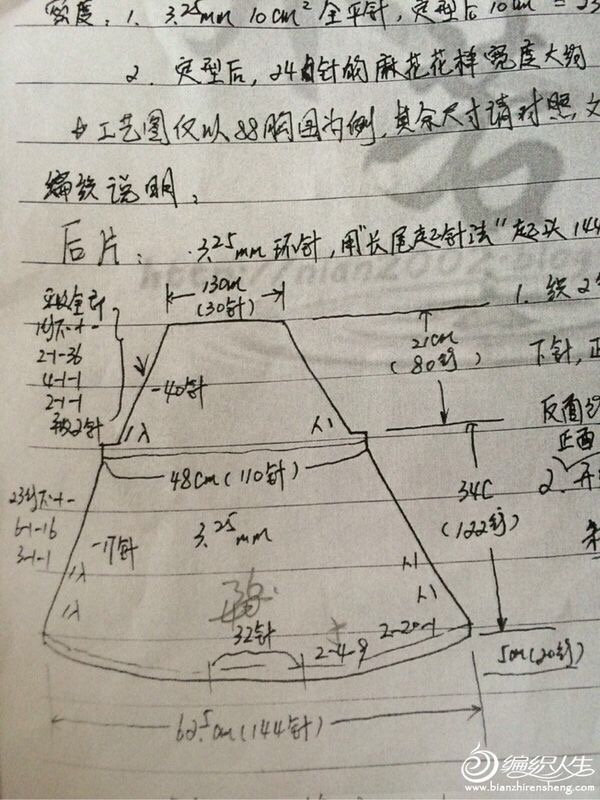 密度: 1. 3.25mm 10cm² 全平针, 定型后10cm = 23
2. 定型后, 24针的麻花花样宽度大约
工艺图仅以88胸围为例, 其余尺寸请对照文
编织说明:
后片: 3.25mm环针, 用"长尾起针法"起头144
13cm
(30针)
平收全部
1行不+-
2-1-36
4-1-1
2-1-1
平收2针
-40针
21cm
(80行)
1. 织2
下针, 正
反面
正面
2. 开
48cm(110针)
34C
(122行)
23行不+-
6-1-16
3-1-1
-17针
3.25mm
32针
2-4-9
2-20-1
5cm(20行)
62.5cm(144针)
编织人生
www.bianzhirensheng.com